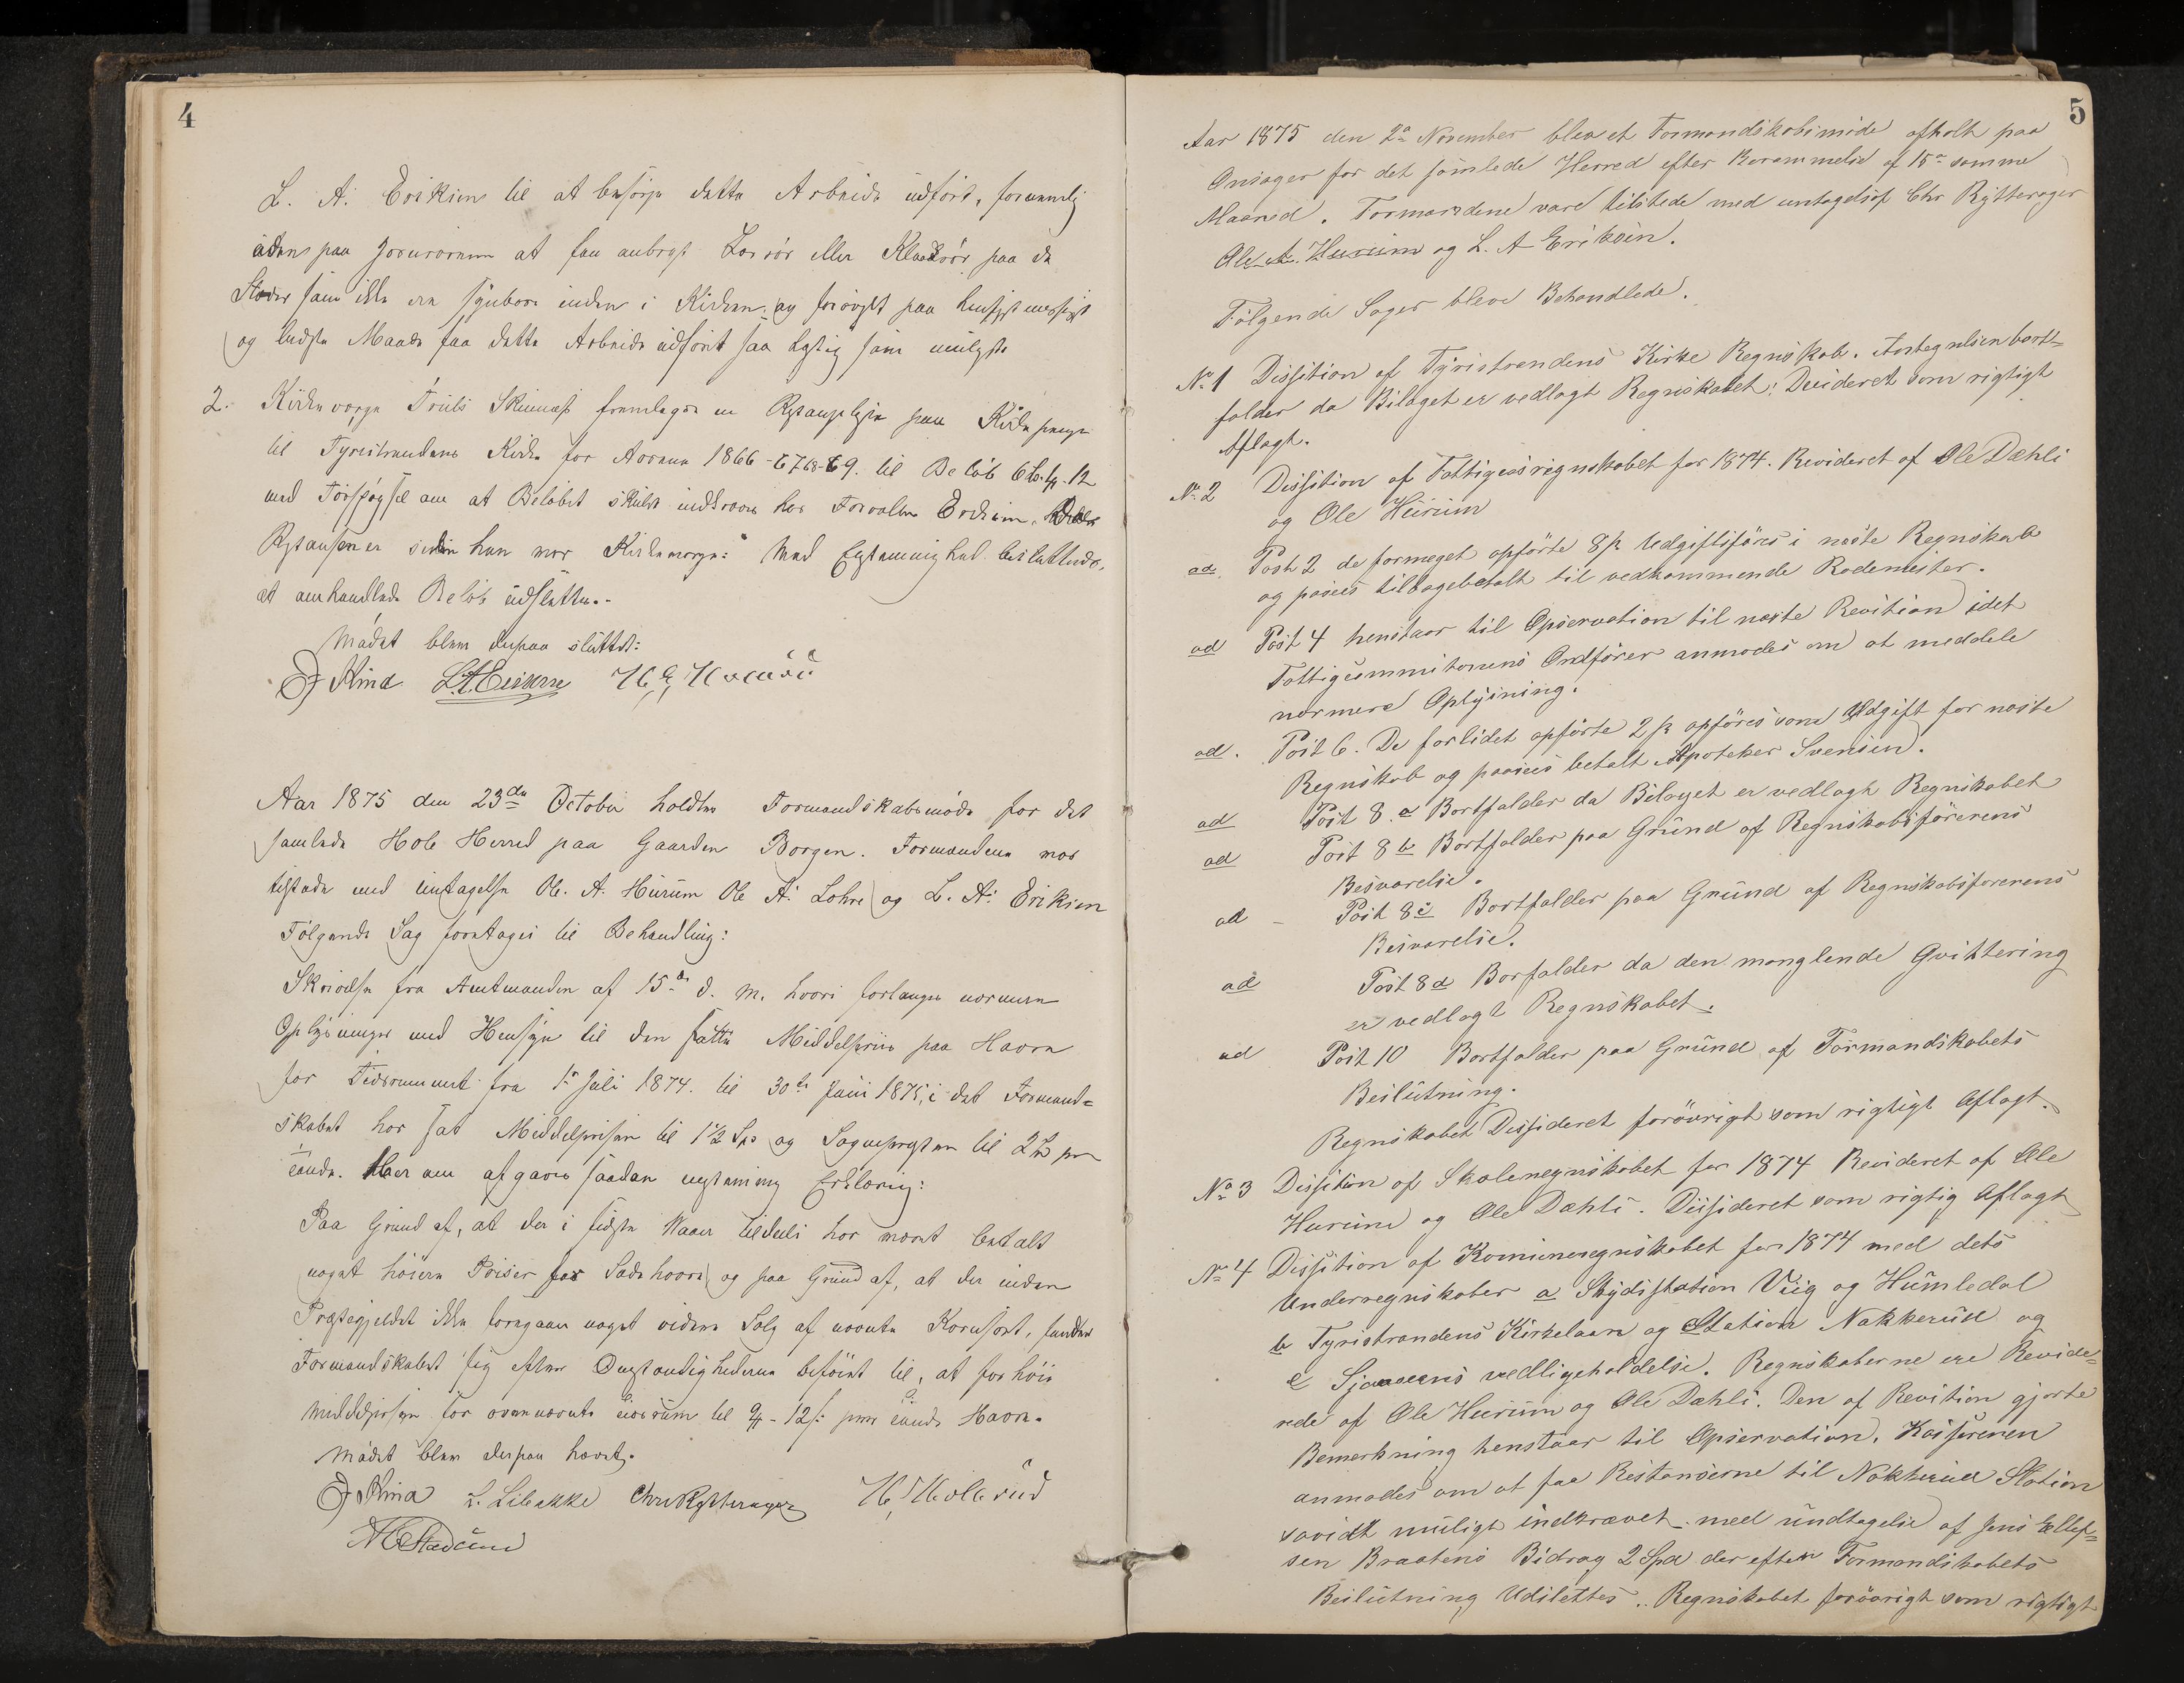 4
L. A. Eriksen til at besørge dette Arbeide udført, fornemlig
uden paa at faa anbragt eller paa de
Steder som ikke ere synbare inden i Kirken og forövrigt paa hensigtmessigst
og bedste Maade faa dette Arbeide udfört saa hastig som muligt
2. Kirkeværge Truls Skinnes fremlagde en Restanceliste paa Kirkepenge
til Tyristrandens Kirke for Aarene 1866-67-68-69. til Belöb
med Forspögsel om at Belöbet skulde indkræves hos Forvalter
Restansen er siden han var Kirkeværge: Med Enstemmighed besluttedes,
at omhandlede Belöb udslettes.
Mödet blev derpaa sluttet:
Aar 1875 den 23de October holdtes Formandskabsmöde for det
samlede Hole Herred paa Gaarden Borgen. Formændene var
tilstede med Untagelse Ole. A. Hurum Ole A. Lohre og L. A. Eriksen
Fölgende Sag foretoges til Behandling:
Skrivelse fra Amtmanden af 15de d. m. hvori forlanges nærmere
Oplysninger med Hensyn til den satte Middelpris paa Havre
for Tidsrummet fra 1ste Juli 1874. til 30te Juni 1875, i det Formand=
skabet har sat Middelprisen til 1 1/2 Spd og Sognepresten til 2 pr
Tönde. Her om afgaves saadan enstemmig Erklæring:
Paa Grund af, at der i sidste Vaar tildels har været betalt
noget höiere Priser for Sædehavre og paa Grund af, at der inden
Præstegjeldet ikke foregaar noget videre Salg af nævnte Kornsort, fandt
Formandskabet sig efter Omstændighederne beföiet til, at forhöie
Middelprisen for ovennævnte Tidsrum til 9 - 12 s: pr. Tönde Havre.
Mödet blev derpaa hævet.
L. Libakke Chr Rytterager
5
Aar 1875 den 2den November blev et Formandskabsmöde afholt paa
Onsager for det samlede Herred efter Berammelse af 15de samme
Maaned. Formændene vare tilstede med untagelse af Chr Rytterager
Ole A. Hurum og L. A Eriksen.
Fölgende Sager bleve Behandlede.
No. 1 Dissition af Tyristrandens Kirke Regnskab. Antegnelsen bort=
falder da Bilaget er vedlagt Regnskabet; Desideret som rigtigt
Aflagt.
No. 2 Dissition af Fattigvæsregnskabet for 1874. Revideret af Ole Dæhli
og Ole Hurum
ad Post 2 de formeget opförte 8 s Udgiftsföres i næste Regnskab
og passes tilbagebetalt til vedkommende Rodemester.
ad Post 4 henstaar til Opservation til næste Revision idet
Fattigcommitionens Ordförer anmodes om at meddele
nærmere Oplysning.
ad. Post 6. De forlidet opförte 2 s opföres som Udgift for næste
Regnskab og passes betalt Apoteker Svensen.
ad Post 8. a Bortfalder da Bilaget er vedlagt Regnskabet
ad Post 8 b Bortfalder paa Grund af Regnskabsförerens
Besvarelse.
ad - Post 8 c Bortfalder paa Grund af Regnskabsförerens
Besvarelse.
ad Post 8 d Borfalder da den manglende Qvittering
er vedlagt Regnskabet.
ad Post 10 Bortfalder paa Grund af Formandskabets
Beslutning.
Regnskabet Dessideret forövrigt som rigtigt Aflagt.
No. 3 Dissition af Skoleregnskabet for 1874 Revideret af Ole
Hurum og Ole Dæhli. Dissideret som rigtig Aflagt
No. 4 Dissition af Komuneregnskabet for 1874 med dets
Underregnskaber a Skydsstation Viig og Humledal
b Tyristrandens Kirkelaan og Station Nakkerud og
c vedligeholdelse. Regnskaberne ere Revide=
rede af Ole Hurum og Ole Dæhli. Den af Revision gjorte
Bemerkning henstaar til Opservation. Kassereren
anmodes om at faa Restanserne til Nakkerud Station
savidt muligt indkrævet med undtagelse af Jens Ellef=
sen Braatens Bidrag 2 Spd der efter Formandskabets
Beslutning Udslettes. Regnskabet forövrigt som rigtigt